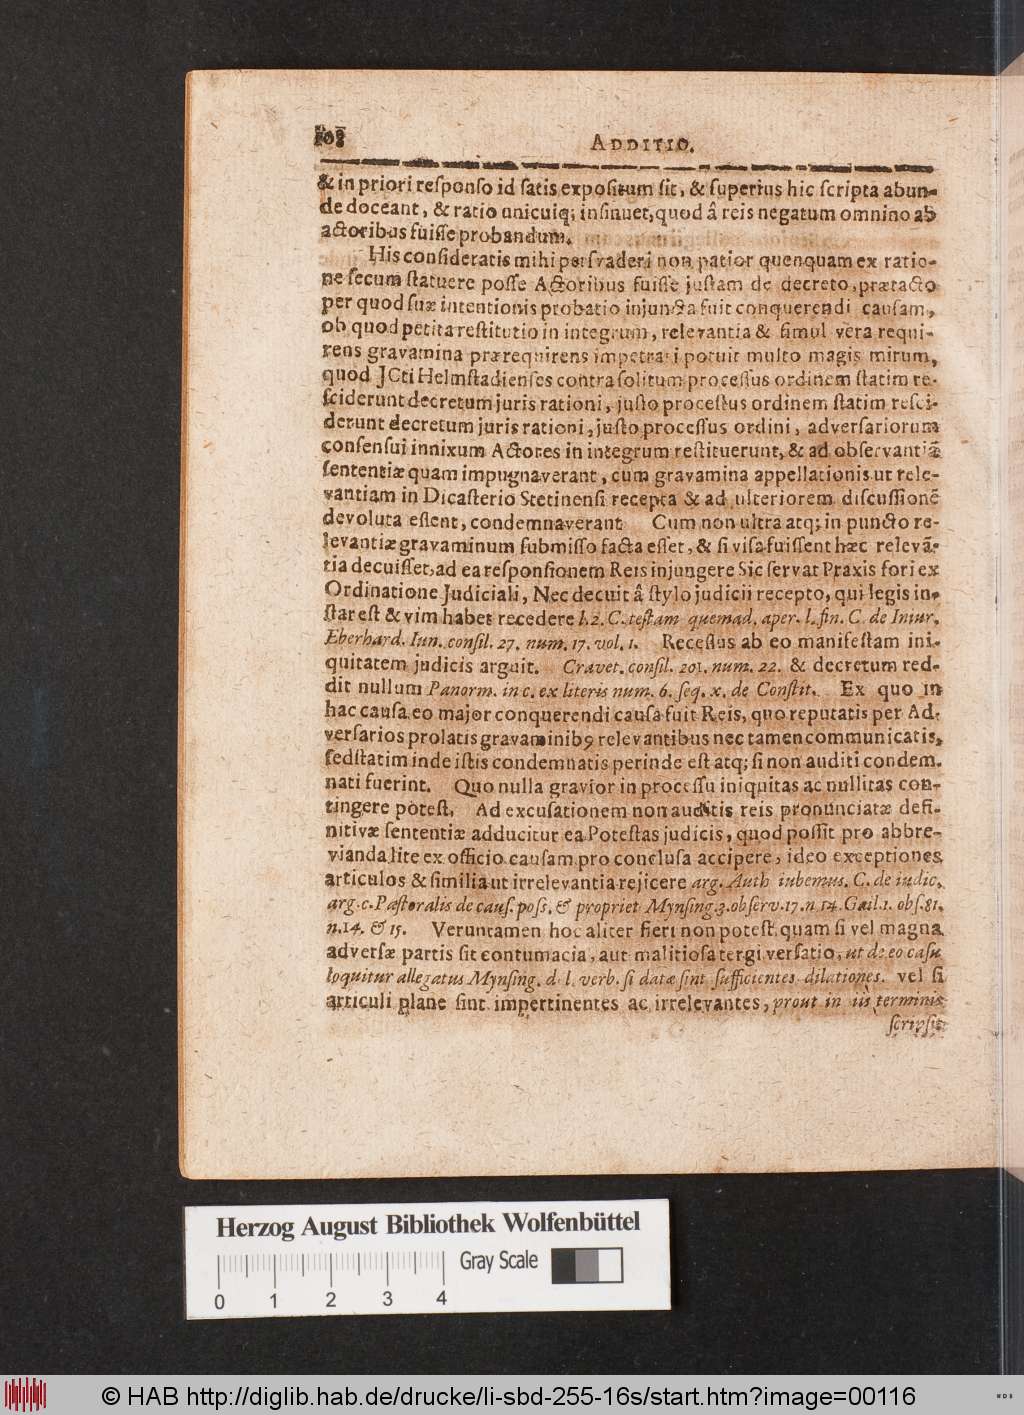 108
ADDITIO.
& in priori responso id satis expositum sit, & superius hic scripta abun-
de doceant, & ratio unicuiq; insinuet, quod â reis negatum omnino ab
actoribus fuisse probandum.
His consideratis mihi persvaderi non patior quenquam ex ratio-
ne secum statuere posse Actoribus fuisse justam de decreto, prætacto
per quod suæ intentionis probatio injuncta fuit conquerendi causam,
ob quod petita restitutio in integrum, relevantia & simul vera requi-
rens gravamina prærequirens impetrari potuit multo magis mirum,
quod JCti Helmstadienses contra solitum processus ordinem statim re-
sciderunt decretum juris rationi, justo processus ordinem statim resci-
derunt decretum juris rationi, justo processus ordini, adversariorum
consensui innixum Actores in integrum restituerunt, & ad observantiã
sententiæ quam impugnaverant, cum gravamina appellationis ut rele-
vantiam in Dicasterio Stetinensi recepta & ad ulteriorem discussionẽ
devoluta essent, condemnaverant Cum non ultra atq; in puncto re-
levantiæ gravaminum submisso facta esset, & si visa fuissent hæc relevã-
tia decuisset, ad ea responsionem Reis injungere Sic servat Praxis fori ex
Ordinatione Judiciali, Nec decuit â stylo judicii recepto, qui legis in-
star est & vim habet recedere l. 2. C. testam quemad. aper. l. fin. C. de Iniur.
Eberhard. Iun. consil. 27. num. 17. vol. 1. Recessus ab eo manifestam ini-
quitatem judicis arguit. Cravet. consil. 201. num. 22. & decretum red-
dit nullum Panorm. in c. ex literis num. 6. seq. x. de Constit. Ex quo in
hac causa eo major conquerendi causa fuit Reis, quo reputatis per Ad-
versarios prolatis gravaminib9 relevantibus nec tamen communicatis,
sed statim inde istis condemnatis perinde est atq; si non auditi condem.
nati fuerint. Quo nulla gravior in processu iniquitas ac nullitas con-
tingere potest. Ad excusationem non auditis reis pronunciatæ defi-
nitivæ sententiæ adducitur ea Potestas judicis, quod possit pro abbre-
vianda lite ex officio causam pro conclusa accipere, ideo exceptiones
articulos & similia ut irrelevantia rejicere arg. Auth iubemus. C. de iudic.
arg. c. Pastoralis de caus. poss. & propriet Mynsing. 3. observ. 17. n. 14. Gail. 1. obs. 81.
n. 14. & 15. Veruntamen hoc aliter fieri non potest, quam si vel magna
adversæ partis sit contumacia, aut malitiosa tergiversatio, ut de eo casu
loquitur allegatus Mynsing. d. l. verb. si datæ sint sufficientes dilationes. vel si
articuli plane sint impertinentes ac irrelevantes, prout in iis terminis
scripsit
Herzog August Bibliothek Wolfenbüttel
Gray Scale
0 1 2 3 4
© HAB http://diglib.hab.de/drucke/li-sbd-255-16s/start.htm?image=00116
WDB